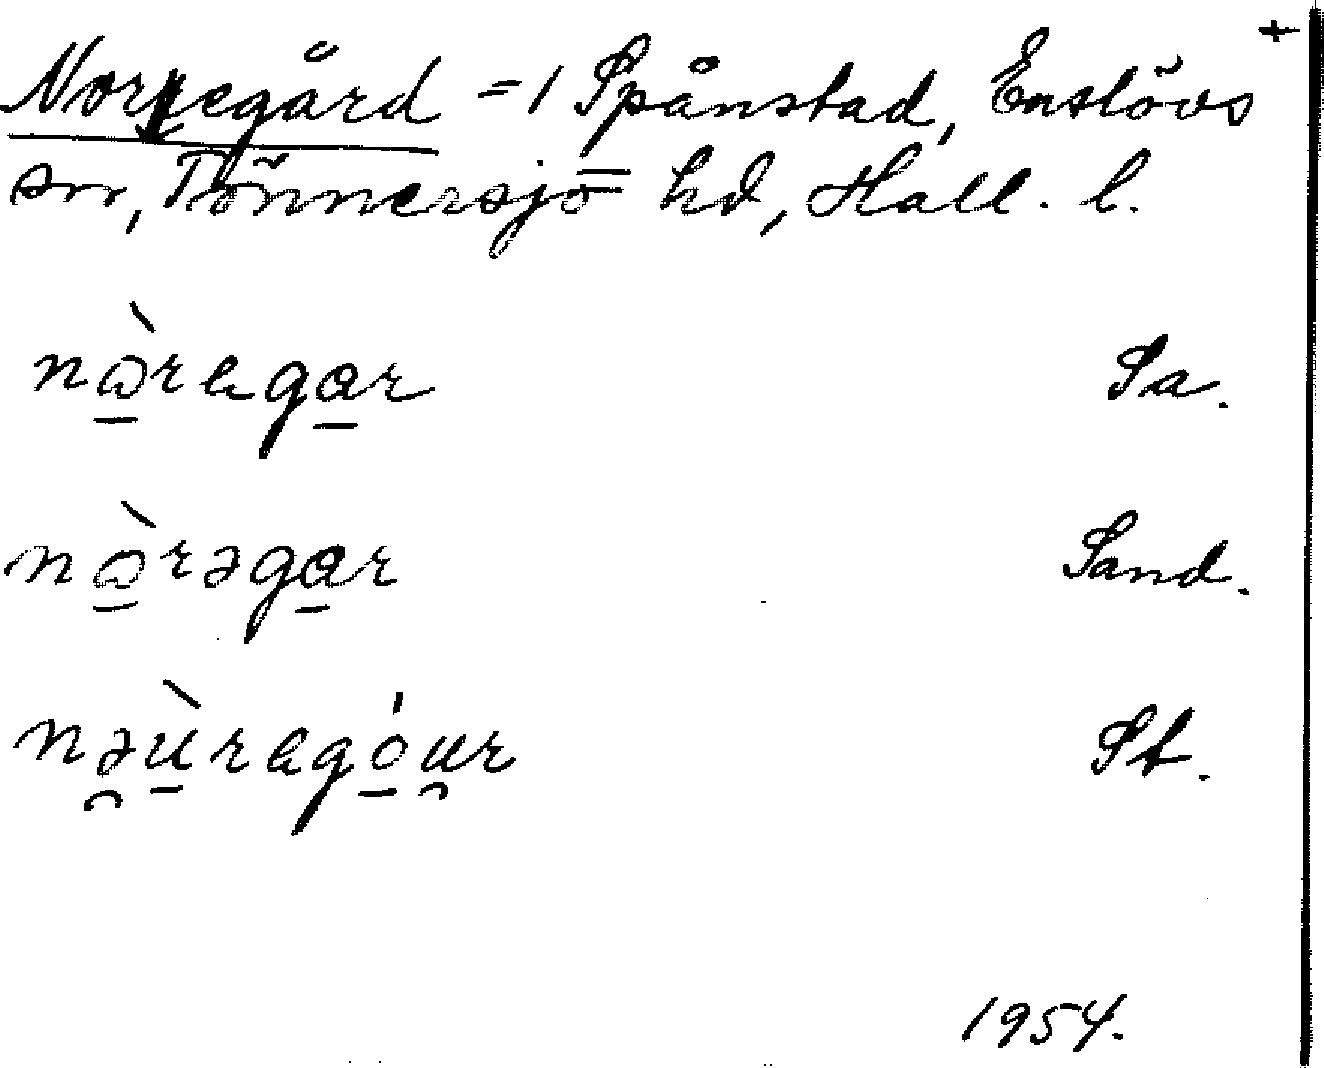 +
Norregård = 1 Spånstad, Enslövs
sn, Tönnersjö hd, Hall. l.
nɷ̀ragar Sa.
nɷ̀rəgar Sand.
nəùragóur St.
1954.